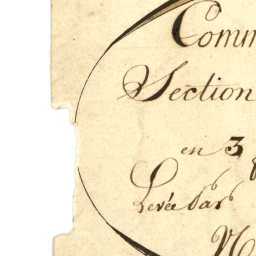 Comm
Section
en 3
Levée par